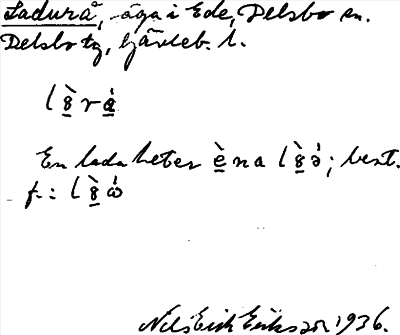 Ladurå, äga i Ede, Delsbo sn.
Delsbo tg, Gävleb. l.
En lada heter èna; best.
f.:
Nils Erik Eriksson 1936.